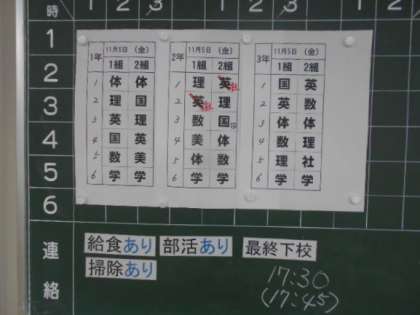 時 1 2 3 1 2 3 1 2 3
1
2
3
4
5
6
1年 11月5日 (金)
1組 2組
1 体 体
2 理 国
3 英 理
4 国 英
5 数 美
6 学 学
2年 11月5日 (金)
1組 2組
1 理 英 社
2 英 社 理
3 数 国
4 美 体
5 体 数
6 学 学
3年 11月5日 (金)
1組 2組
1 国 英
2 英 数
3 体 体
4 数 理
5 理 社
6 学 学
連絡
給食あり 部活あり 最終下校
掃除あり
17:30
(17:45)